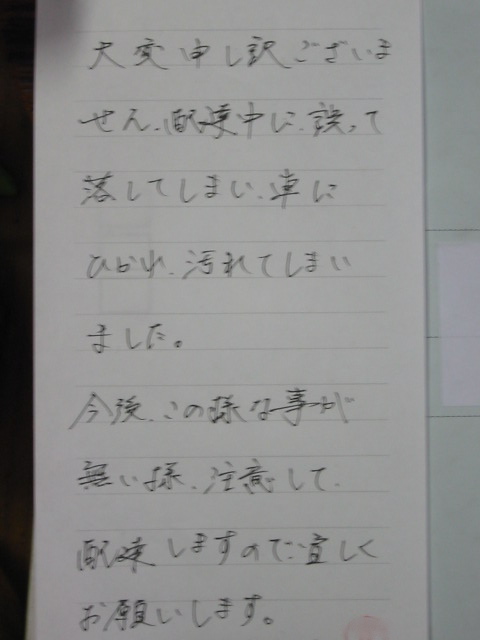 大変申し訳ございま
せん、配達中に、誤って
落してしまい、車に
ひかれ、汚れてしまい
ました。
今後、この様な事が
無い様、注意して、
配達しますので宜しく
お願いします。